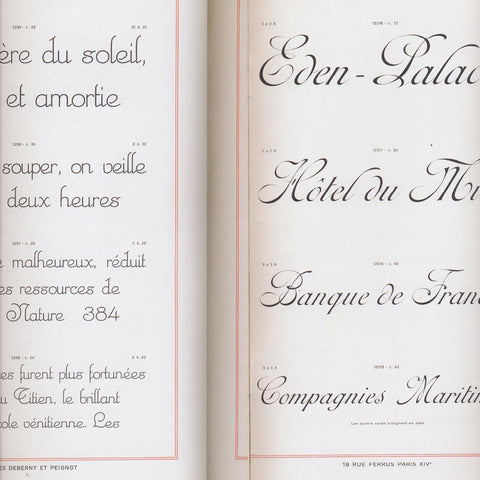 2299 - c. 48
10 k. 20
ère du soleil,
et amortie
2298 - c. 36
8 k. 30
souper, on veille
deux heures
2297 - c. 28
7 k. 20
malheureux, réduit
es ressources de
Nature 384
2296 - c. 24
6 k. 20
es furent plus fortunées
u Titien, le brillant
ole vénitienne. Les
ES DEBERNY ET PEIGNOT
1 a 2 A
12318 - c. 72
Eden-Palac
2 a 2 A
12317 - c. 60
Hôtel du Mi
5 a 3 A
12316 - c. 48
Banque de Franc
6 a 3 A
12319 - c. 42
Compagnies Maritim
Les quatre corps s'alignent en pied
18 RUE FERRUS PARIS XIVe